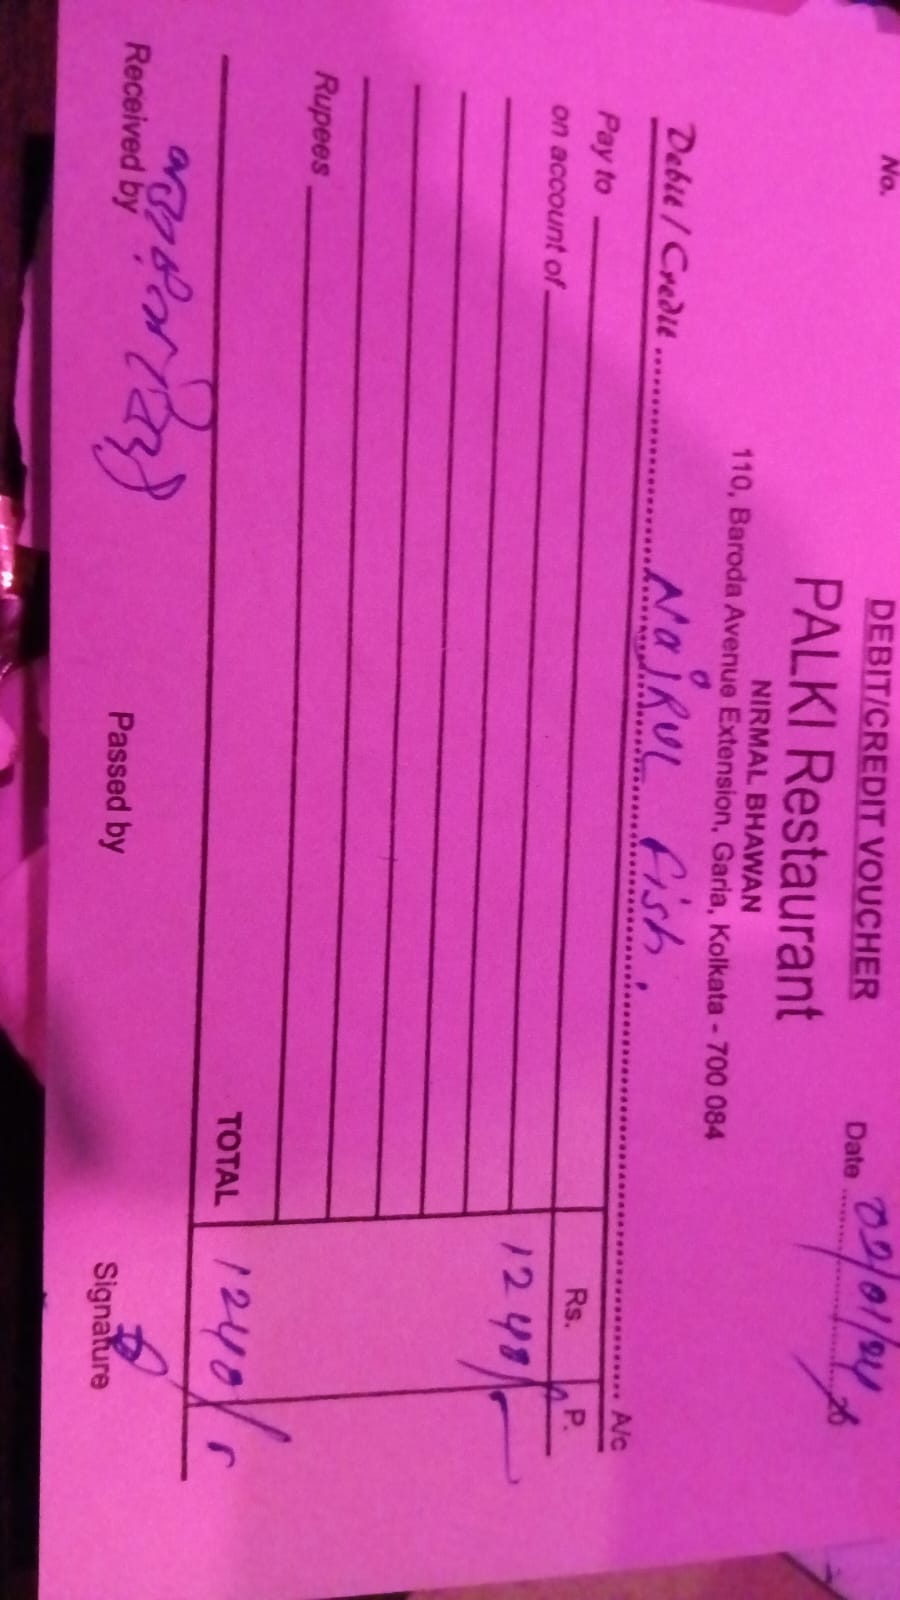 DEBIT/CREDIT VOUCHER
No.
Date 02/01/24 20
PALKI Restaurant
NIRMAL BHAWAN
110, Baroda Avenue Extension, Garia, Kolkata - 700 084
Debit / Credit Najrul fish. A/c
Pay to
Rs. P.
on account of
1248/-
Rupees
TOTAL 1248/-
Received by Passed by Signature